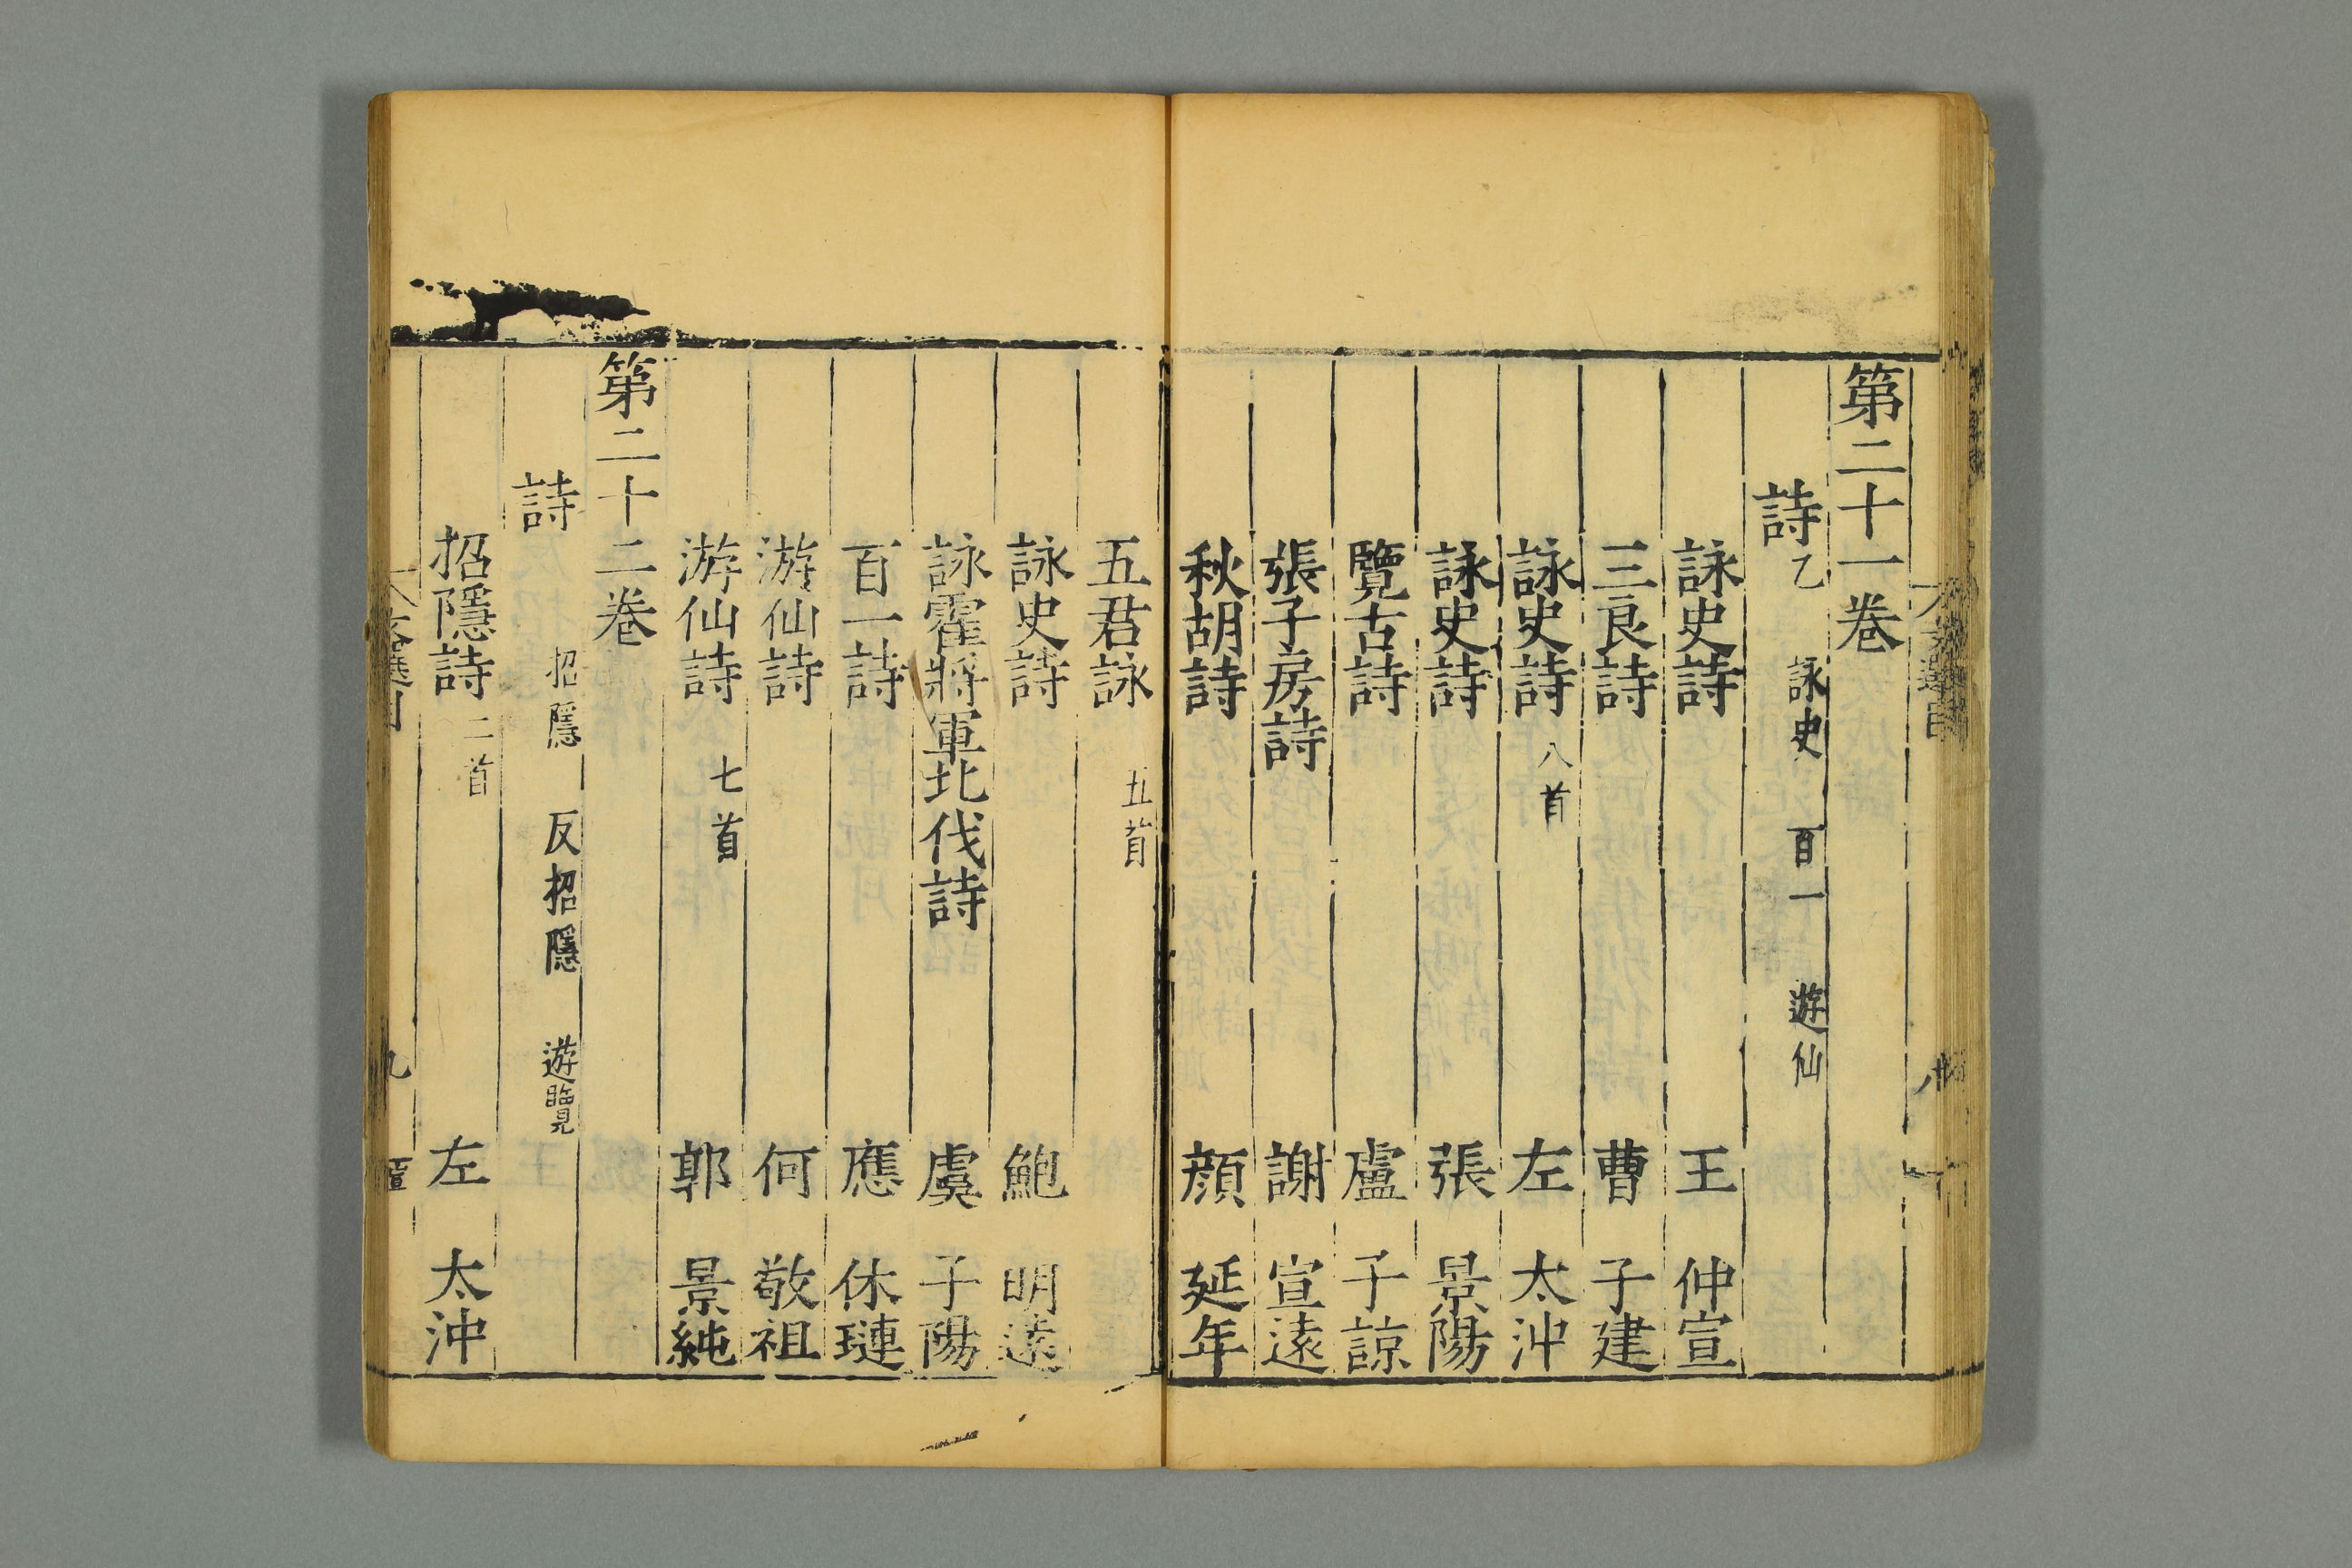 第二十一卷
詩乙 詠史 百一 遊仙
詠史詩 王 仲宣
三良詩 曹 子建
詠史詩 八首 左 太沖
詠史詩 張 景陽
覽古詩 盧 子諒
張子房詩 謝 宣遠
秋胡詩 顔 延年
五君詠 五首
詠史詩 鮑 明遠
詠霍將軍北伐詩 虞 子陽
百一詩 應 休璉
游仙詩 何 敬祖
游仙詩 七首 郭 景純
第二十二卷
詩 招隱 反招隱 遊覽
招隱詩 二首 左 太沖